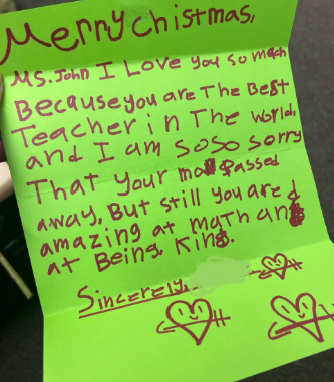 Merry christmas,
Ms. John I Love you so much
Because you are The Best
Teacher in The world,
and I am soso sorry
That your mom passed
away, But still you are
amazing at math and
at Being kind.
Sincerely,